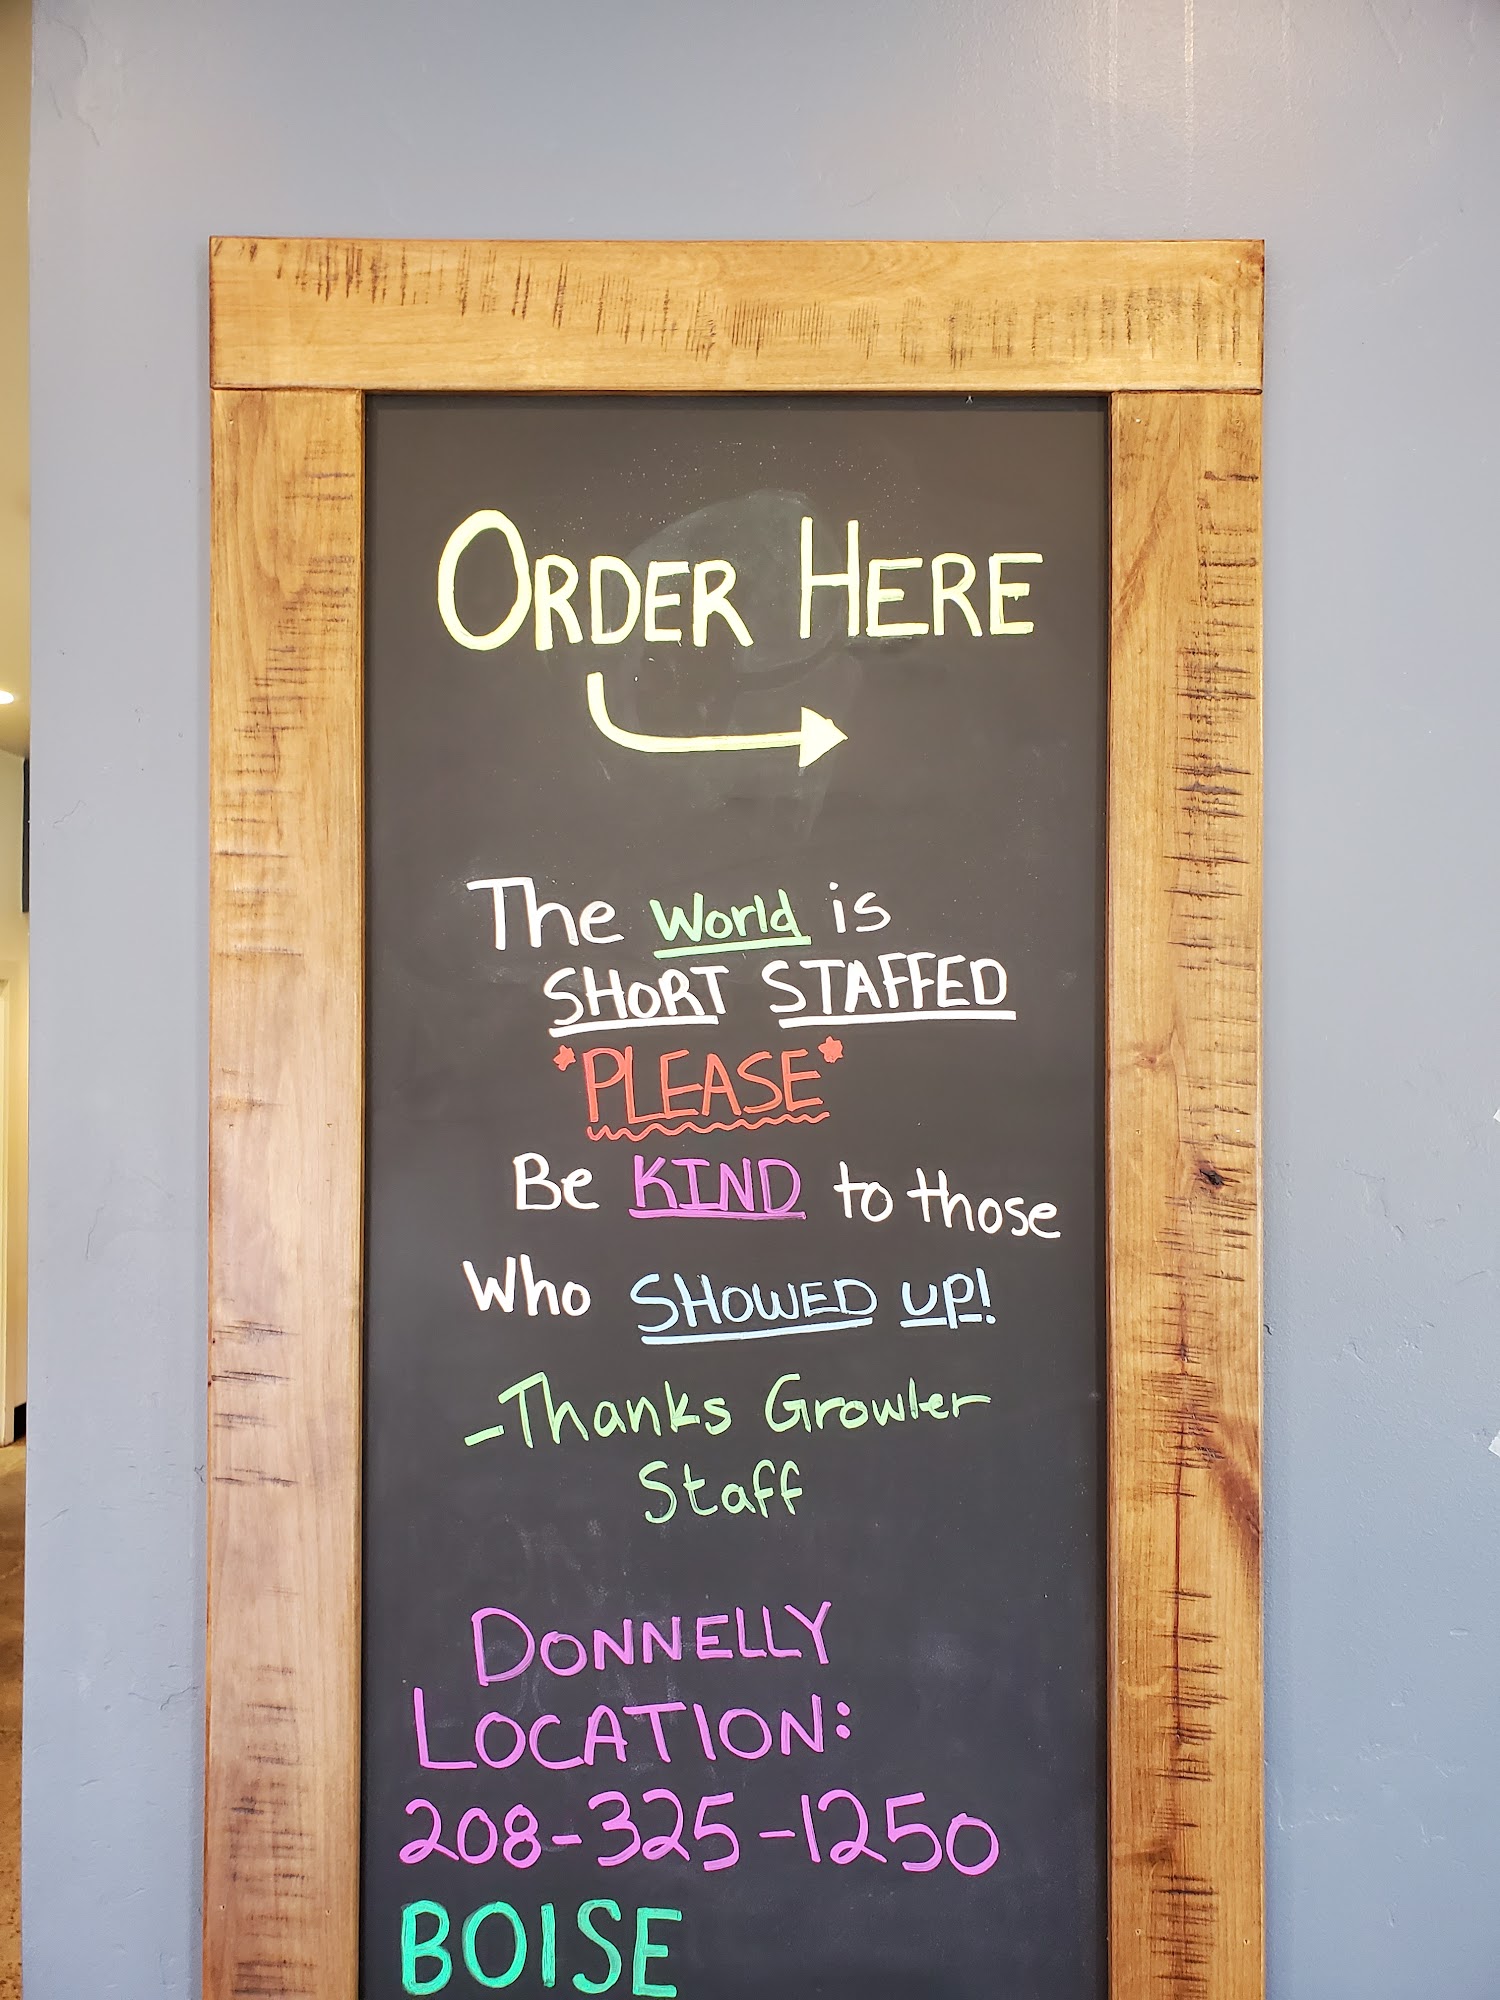 ORDER HERE
The World is
SHORT STAFFED
*PLEASE*
Be KIND to those
Who SHOWED UP!
-Thanks Growler
Staff
DONNELLY
LOCATION:
208-325-1250
BOISE